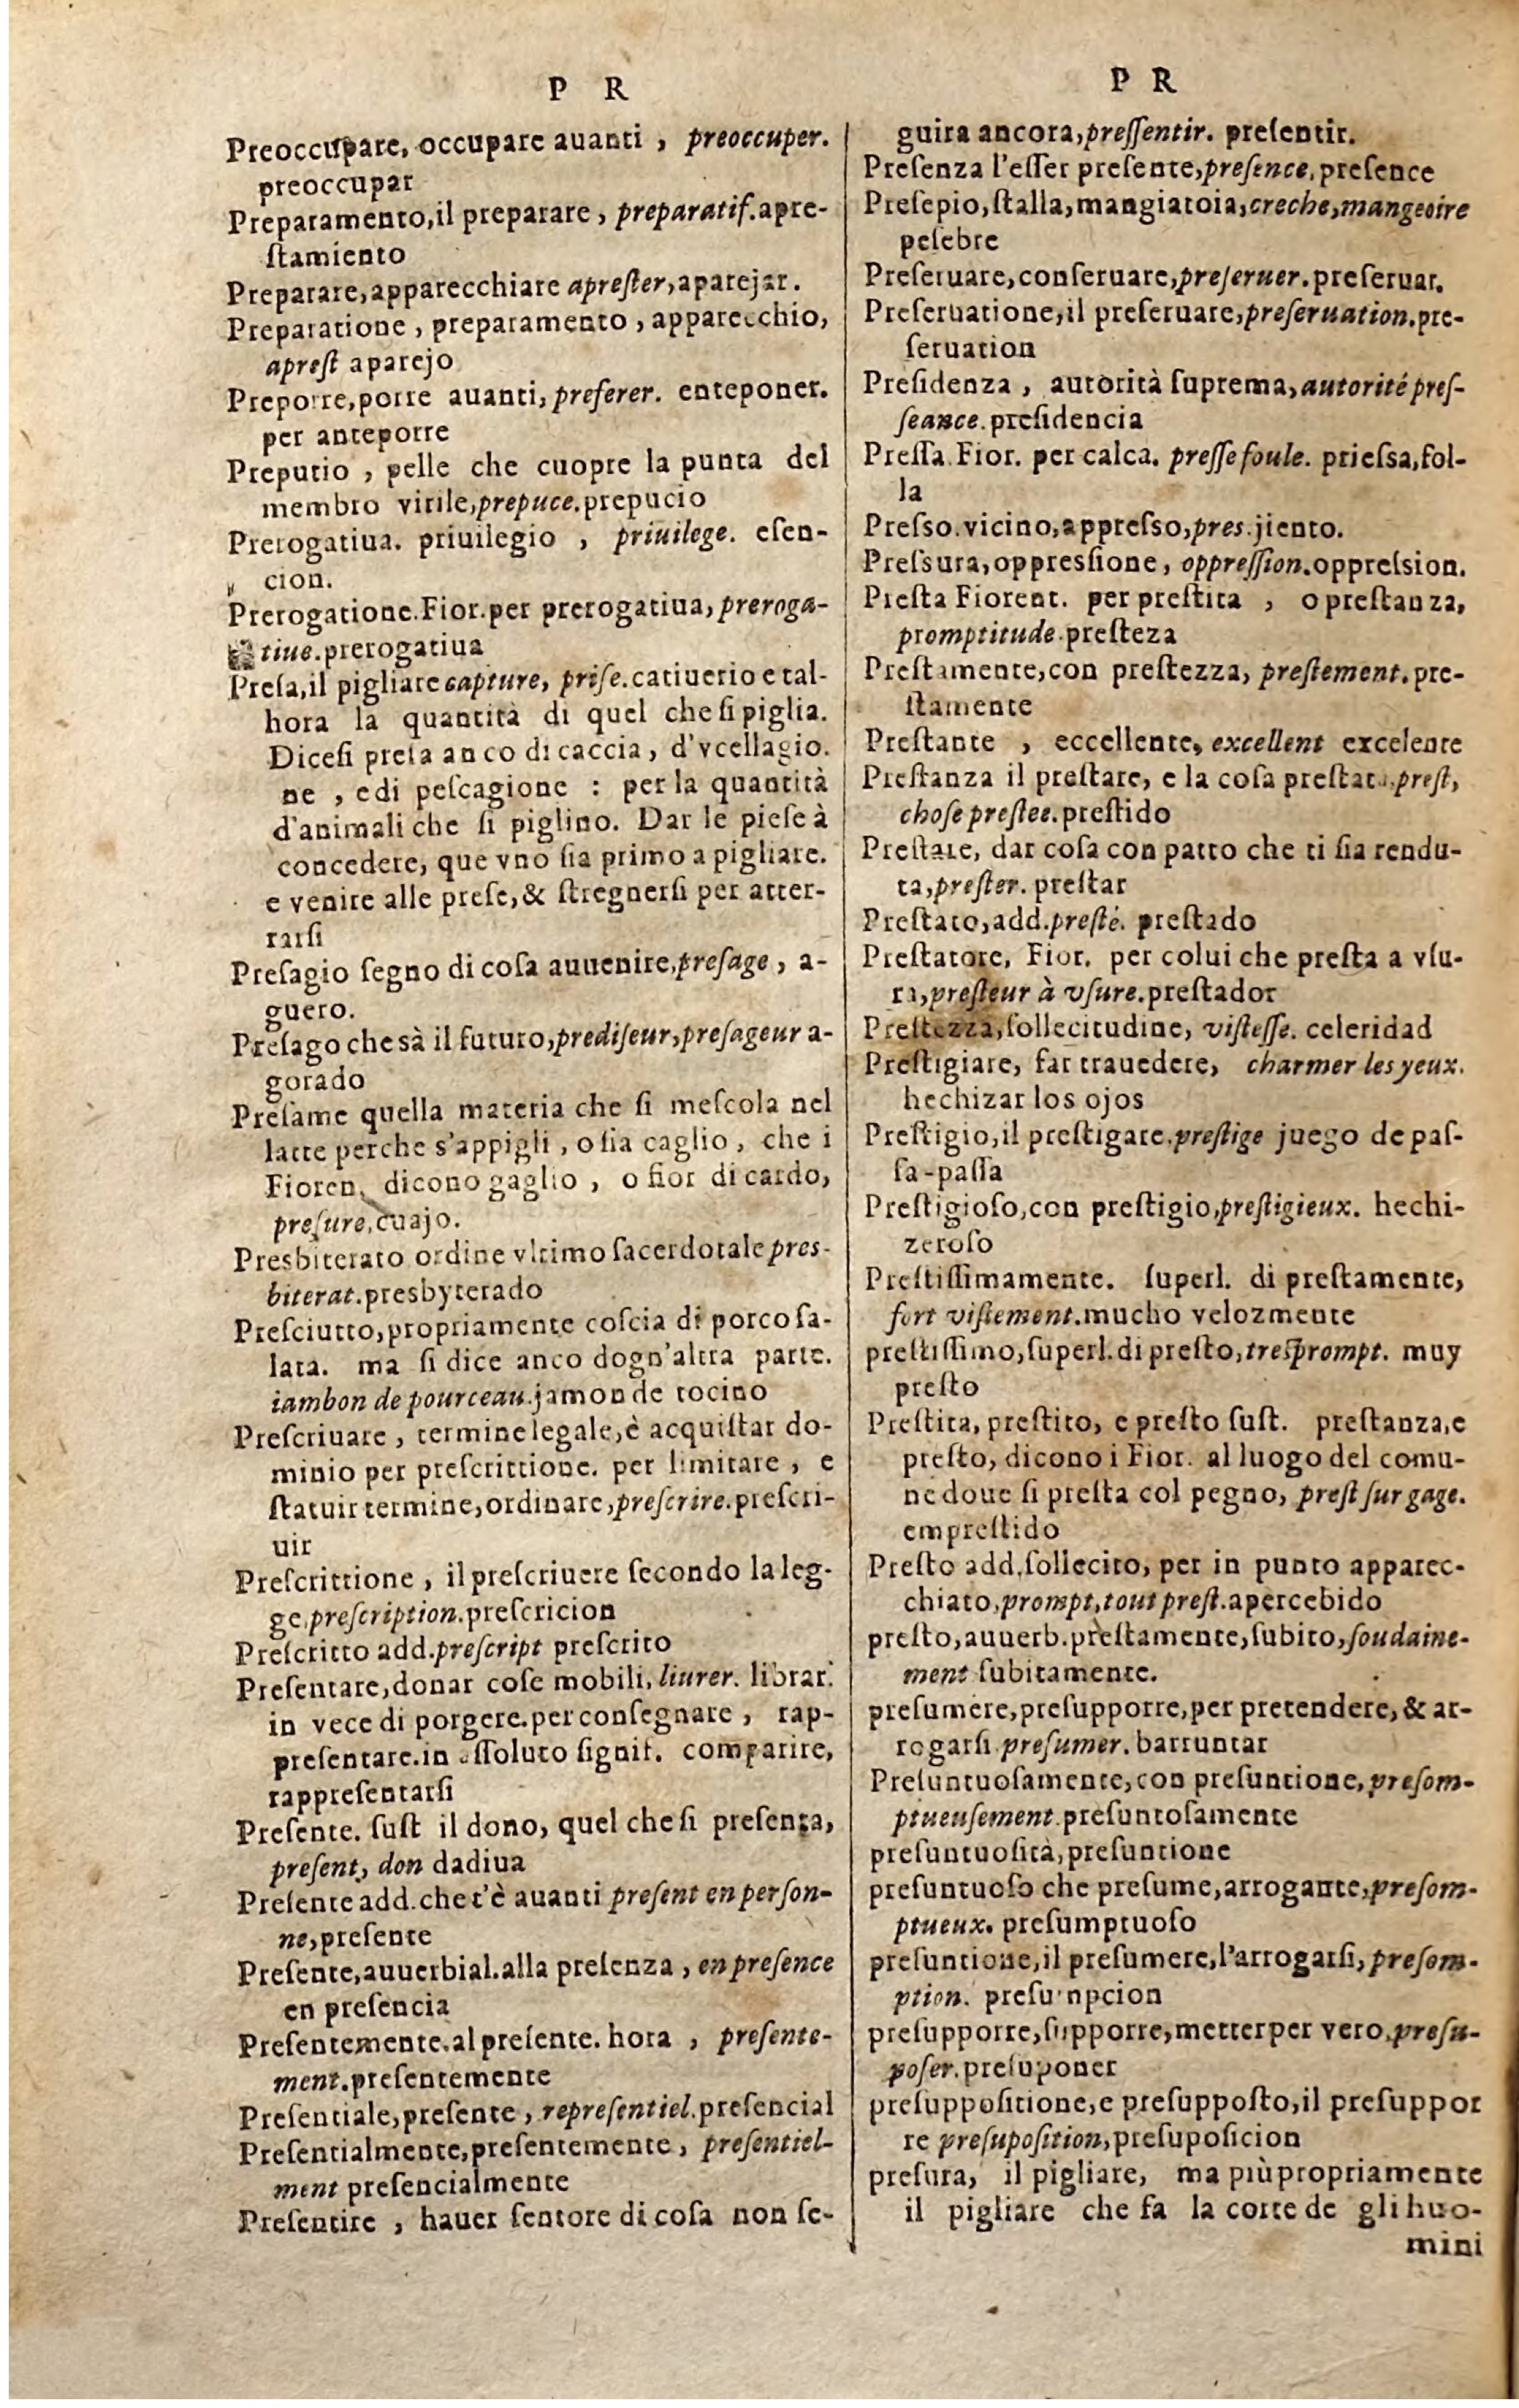 P R
Preoccupare, occupare auanti, preoccuper.
preoccupar
Preparamento,il preparare, preparatif.apre-
ſtamiento
Preparare,apparecchiare apreſter,aparejar.
Preparatione, preparamento, apparecchio,
apreſt aparejo
Preporre,porre auanti, preferer. enteponer.
per anteporre
Preputio, pelle che cuopre la punta del
membro virile,prepuce.prepucio
Prerogatiua. priuilegio, priuilege. eſen-
cion.
Prerogatione.Fior.per prerogatiua, preroga-
tiue.prerogatiua
Preſa,il pigliare capture, priſe.catiuerio e tal-
hora la quantità di quel che ſi piglia.
Diceſi preſa anco di caccia, d'vcellagio.
ne, e di peſcagione : per la quantità
d'animali che ſi piglino. Dar le pieſe à
concedere, que vno ſia primo a pigliare.
e venire alle preſe,& ſtregnerſi per atter-
rarſi
Preſagio ſegno di coſa auuenire,preſage, a-
guero.
Preſago che sà il futuro,prediſeur,preſageur a-
gorado
Preſame quella materia che ſi meſcola nel
latte perche s'appigli, o ſia caglio, che i
Fioren. dicono gaglio, o fior di cardo,
preſure,cuajo.
Presbiterato ordine vltimo ſacerdotale pres-
biterat.presbyterado
Preſciutto,propriamente coſcia di porco ſa-
lata. ma ſi dice anco dogn'altra parte.
iambon de pourceau.jamon de tocino
Preſcriuare, termine legale,è acquiſtar do-
minio per preſcrittione. per limitare, e
ſtatuir termine,ordinare,preſcrire.preſcri-
uir
Preſcrittione, il preſcriuere ſecondo la leg-
ge,preſcription.preſcricion
Preſcritto add.preſcript preſcrito
Preſentare,donar coſe mobili, liurer. librar.
in vece di porgere.per conſegnare, rap-
preſentare.in aſſoluto ſignif. comparire,
rappreſentarſi
Preſente. ſuſt il dono, quel che ſi preſenta,
preſent, don dadiua
Preſente add.che t'è auanti preſent en perſon-
ne,preſente
Preſente,auuerbial.alla preſenza, en preſence
en preſencia
Preſentemente.al preſente. hora, preſente-
ment.preſentemente
Preſentiale,preſente, repreſentiel.preſencial
Preſentialmente,preſentemente, preſentiel-
ment preſencialmente
Preſentire, hauer ſentore di coſa non ſe-
P R
guira ancora,preſſentir. preſentir.
Preſenza l'eſſer preſente,preſence,preſence
Preſepio,ſtalla,mangiatoia,creche,mangeoire
peſebre
Preſeruare,conſeruare,preſeruer.preſeruar.
Preſeruatione,il preſeruare,preſeruation.pre-
ſeruation
Preſidenza, autorità ſuprema,autorité preſ-
ſeance.preſidencia
Preſſa Fior. per calca. preſſe foule. prieſsa,fol-
la
Preſso.vicino,appreſso,pres.jiento.
Preſsura,oppressione, oppreſſion.oppreſsion.
Preſta Fiorent. per preſtita, o preſtanza,
promptitude.preſteza
Preſtamente,con preſtezza, preſtement.pre-
ſtamente
Preſtante, eccellente, excellent excelente
Preſtanza il preſtare, e la coſa preſtata.preſt,
choſe preſtee.preſtido
Preſtare, dar coſa con patto che ti ſia rendu-
ta,preſter. preſtar
Preſtato,add.preſté. preſtado
Preſtatore, Fior. per colui che preſta a vſu-
ra,preſteur à vſure.preſtador
Preſtezza,ſollecitudine, viſteſſe. celeridad
Preſtigiare, far trauedere, charmer les yeux.
hechizar los ojos
Preſtigio,il preſtigare.preſtige juego de paſ-
ſa-paſſa
Preſtigioſo,con preſtigio,preſtigieux. hechi-
zeroſo
Preſtiſſimamente. ſuperl. di preſtamente,
fort viſtement.mucho velozmente
preſtiſſimo,ſuperl.di preſto,tresprompt. muy
preſto
Preſtita, preſtito, e preſto ſuſt. preſtanza,e
preſto, dicono i Fior. al luogo del comu-
ne doue ſi preſta col pegno, preſt ſur gage.
empreſtido
Preſto add.ſollecito, per in punto apparec-
chiato,prompt,tout preſt.apercebido
preſto,auuerb.preſtamente,ſubito,ſoudaine-
ment ſubitamente.
preſumere,preſupporre,per pretendere,& ar-
rogarſi.preſumer.barruntar
Preſuntuoſamente,con preſuntione,preſom-
ptueuſement.preſuntoſamente
preſuntuoſità,preſuntione
preſuntuoſo che preſume,arrogante,preſom-
ptueux. preſumptuoſo
preſuntione,il preſumere,l'arrogarſi,preſom-
ption. preſumpcion
preſupporre,ſupporre,metter per vero.preſu-
poſer.preſuponer
preſuppoſitione,e preſuppoſto,il preſuppor
re preſupoſition,preſupoſicion
preſura, il pigliare, ma più propriamente
il pigliare che fa la corte de gli huo-
mini